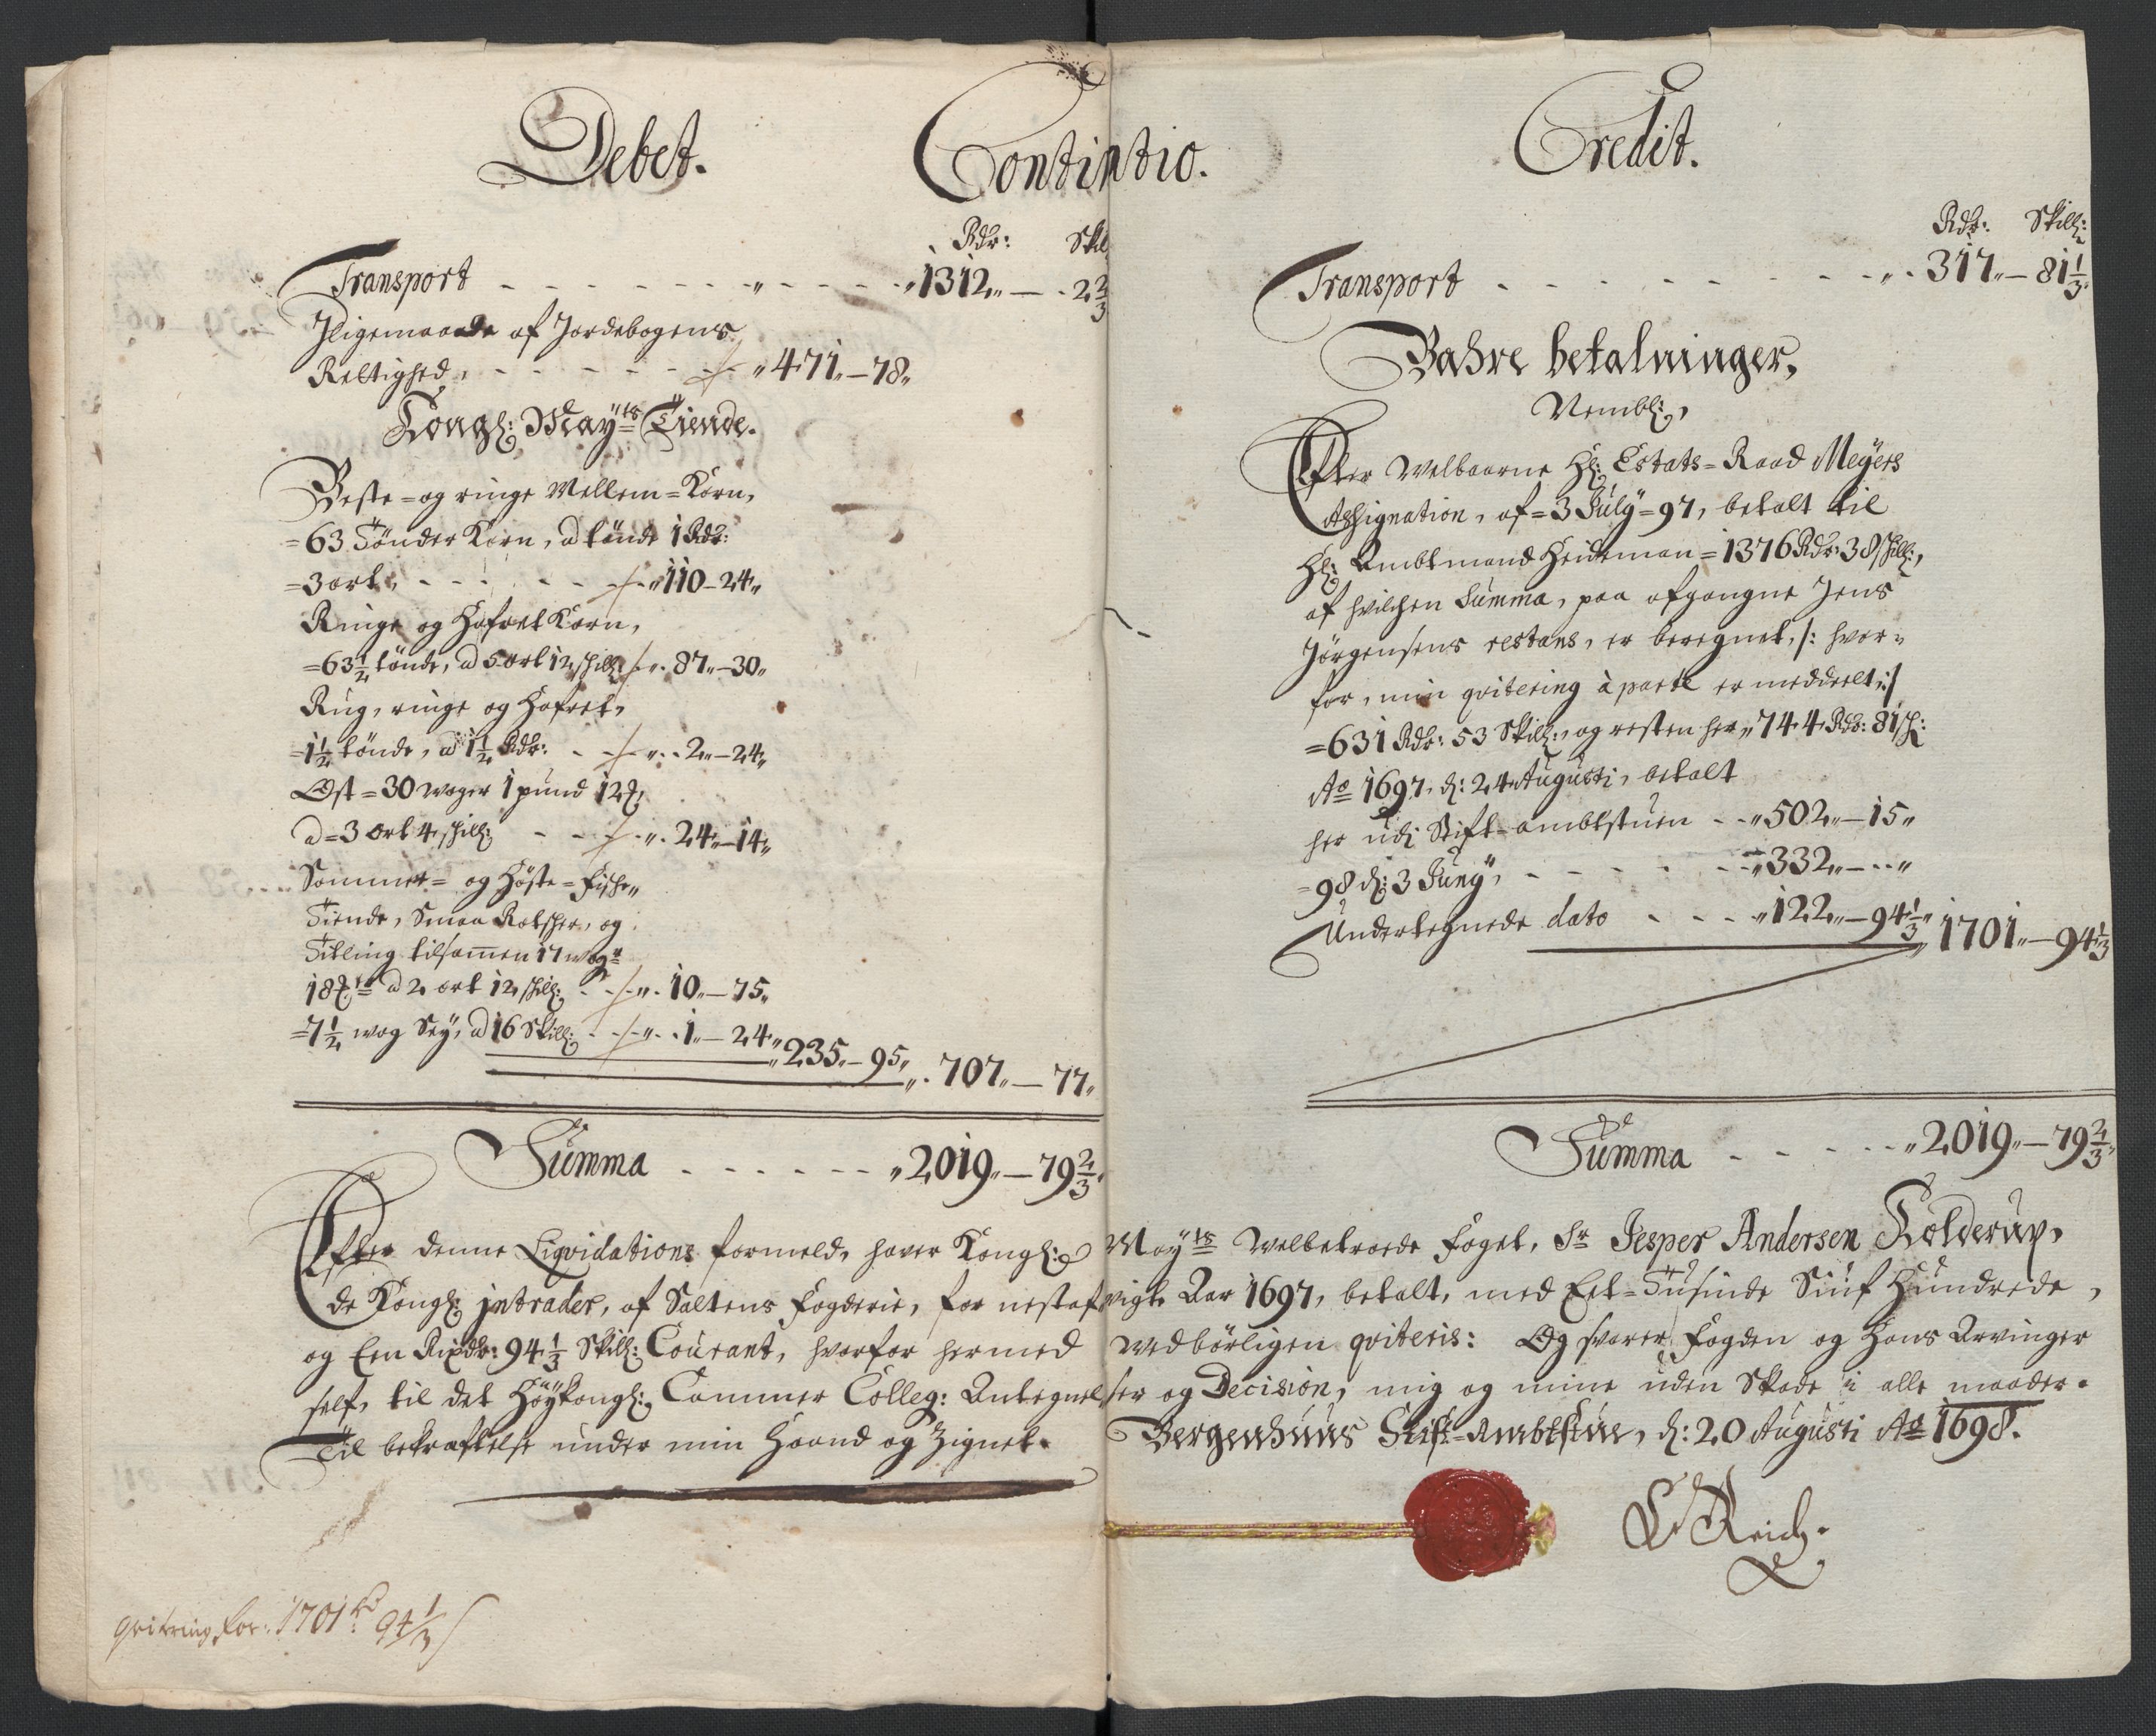 Debet.
Contintio.
Rdr: Skil
Transport - - - - - - - - - - 1312 — - 2 2/3
Jligemaade af Jordebogens
Rettighed, - - - - - - - 471 — 78
Kongl: Mayts Tiende.
Beste = og ringe Mellem = Korn,
= 63 Tönder Korn, a tönde 1 Rdr:
= 3 ort, - - - - - - 110 — 24
Ringe og Hafret Korn,
= 63 1/2 tönde, a 5 ort 12 skill: 87 — 30
Rug, ringe og Hafret,
= 1 1/2 tönde, a 1 1/2 Rdr: - - 2 — 24
Ost = 30 woger 1 pund 12 ℔,
a = 3 ort 4 skill: - - - 24 — 14
Sommer = og Höste = Fische
Tiende, Smaa Rotscher, og
Titling tilsammen 17 wogr
18 ℔ a 2 ort 12 skill: - - 10 — 75
= 7 1/2 wog Sey, a 16 Skill: - - 1 — 24 235 — 95 707 — 77
Summa - - - - - - 2019 — 79 2/3
Credit.
Rdr: Skill:
Transport - - - - - - - - - 317 — 81 1/3
Bahre betalninger,
Nembl:,
Efter Welbaarne Hr: Estats = Raad Meÿers
Assignation, af = 3 Julÿ = 97, betalt til
Hr: Ambtmand Heideman = 1376 Rdr: 38 skill:,
af hvilchen Summa, paa afgangne Jens
Jörgensens restans, er beregnet, /: hvor =
for, min qvitering à parte er meddeelt :/
= 631 Rdr: 53 Skill:, og resten her 744 Rdr: 81 sk:
Ao 1697, d: 24 Augusti, betalt
her udi Stift-ambtstuen - - 502 — 15
= 98 d: 3 Junÿ, - - - - - - 332 — - -
Undertegnede dato - - - - 122 — 94 1/3 1701 — 94 1/3
Summa - - - - - 2019 — 79 2/3
Efter denne Liqvidations formeld, haver Kongl: Mayts Welbetroede Foget, Sr Jesper Andersen Kolderup,
de Kongl: jntrader, af Saltens Fogderie, for nestafvigte Aar 1697, betalt, med Eet = Tusinde Siuf Hundrede,
og Een Rixdr: 94 1/3 Skill: Courant, hvorfor hermed Wedbörligen qviteris: Og svarer Fogden og Hans Arvinger
self, til det Höykongl: Cammer Colleg: Antegnelser og Decision, mig og mine uden Skade i alle maader.
Til bekræftelse under min Haand og Zignet. Bergenhuus Stift-Ambtstue, d: 20 Augusti Ao 1698.
Reich.
qvitering for: 1701 rd 94 1/3